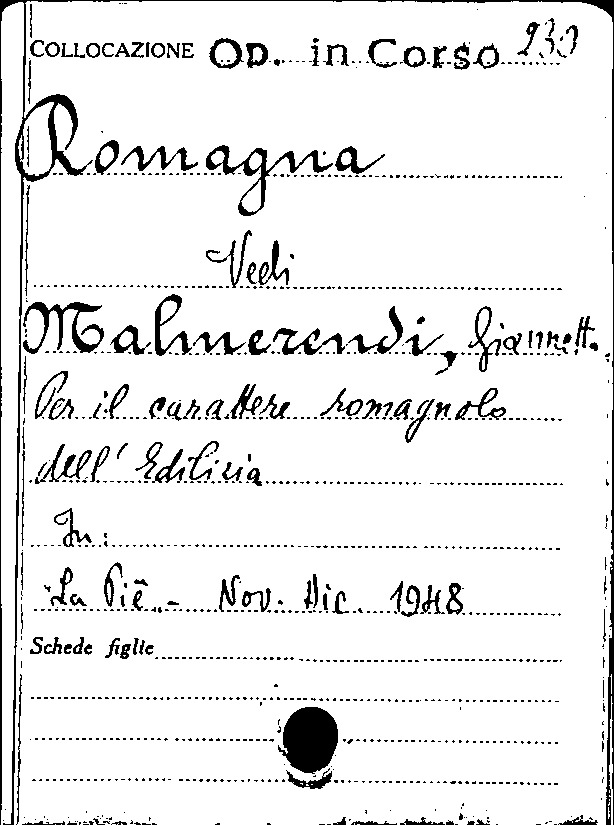 COLLOCAZIONE Op. in Corso 230
Romagna
Vedi
Malmerendi, Giannetto.
Per il carattere romagnolo
dell' Edilizia
In:
"La Piê" - Nov. Dic. 1948
Schede figlie